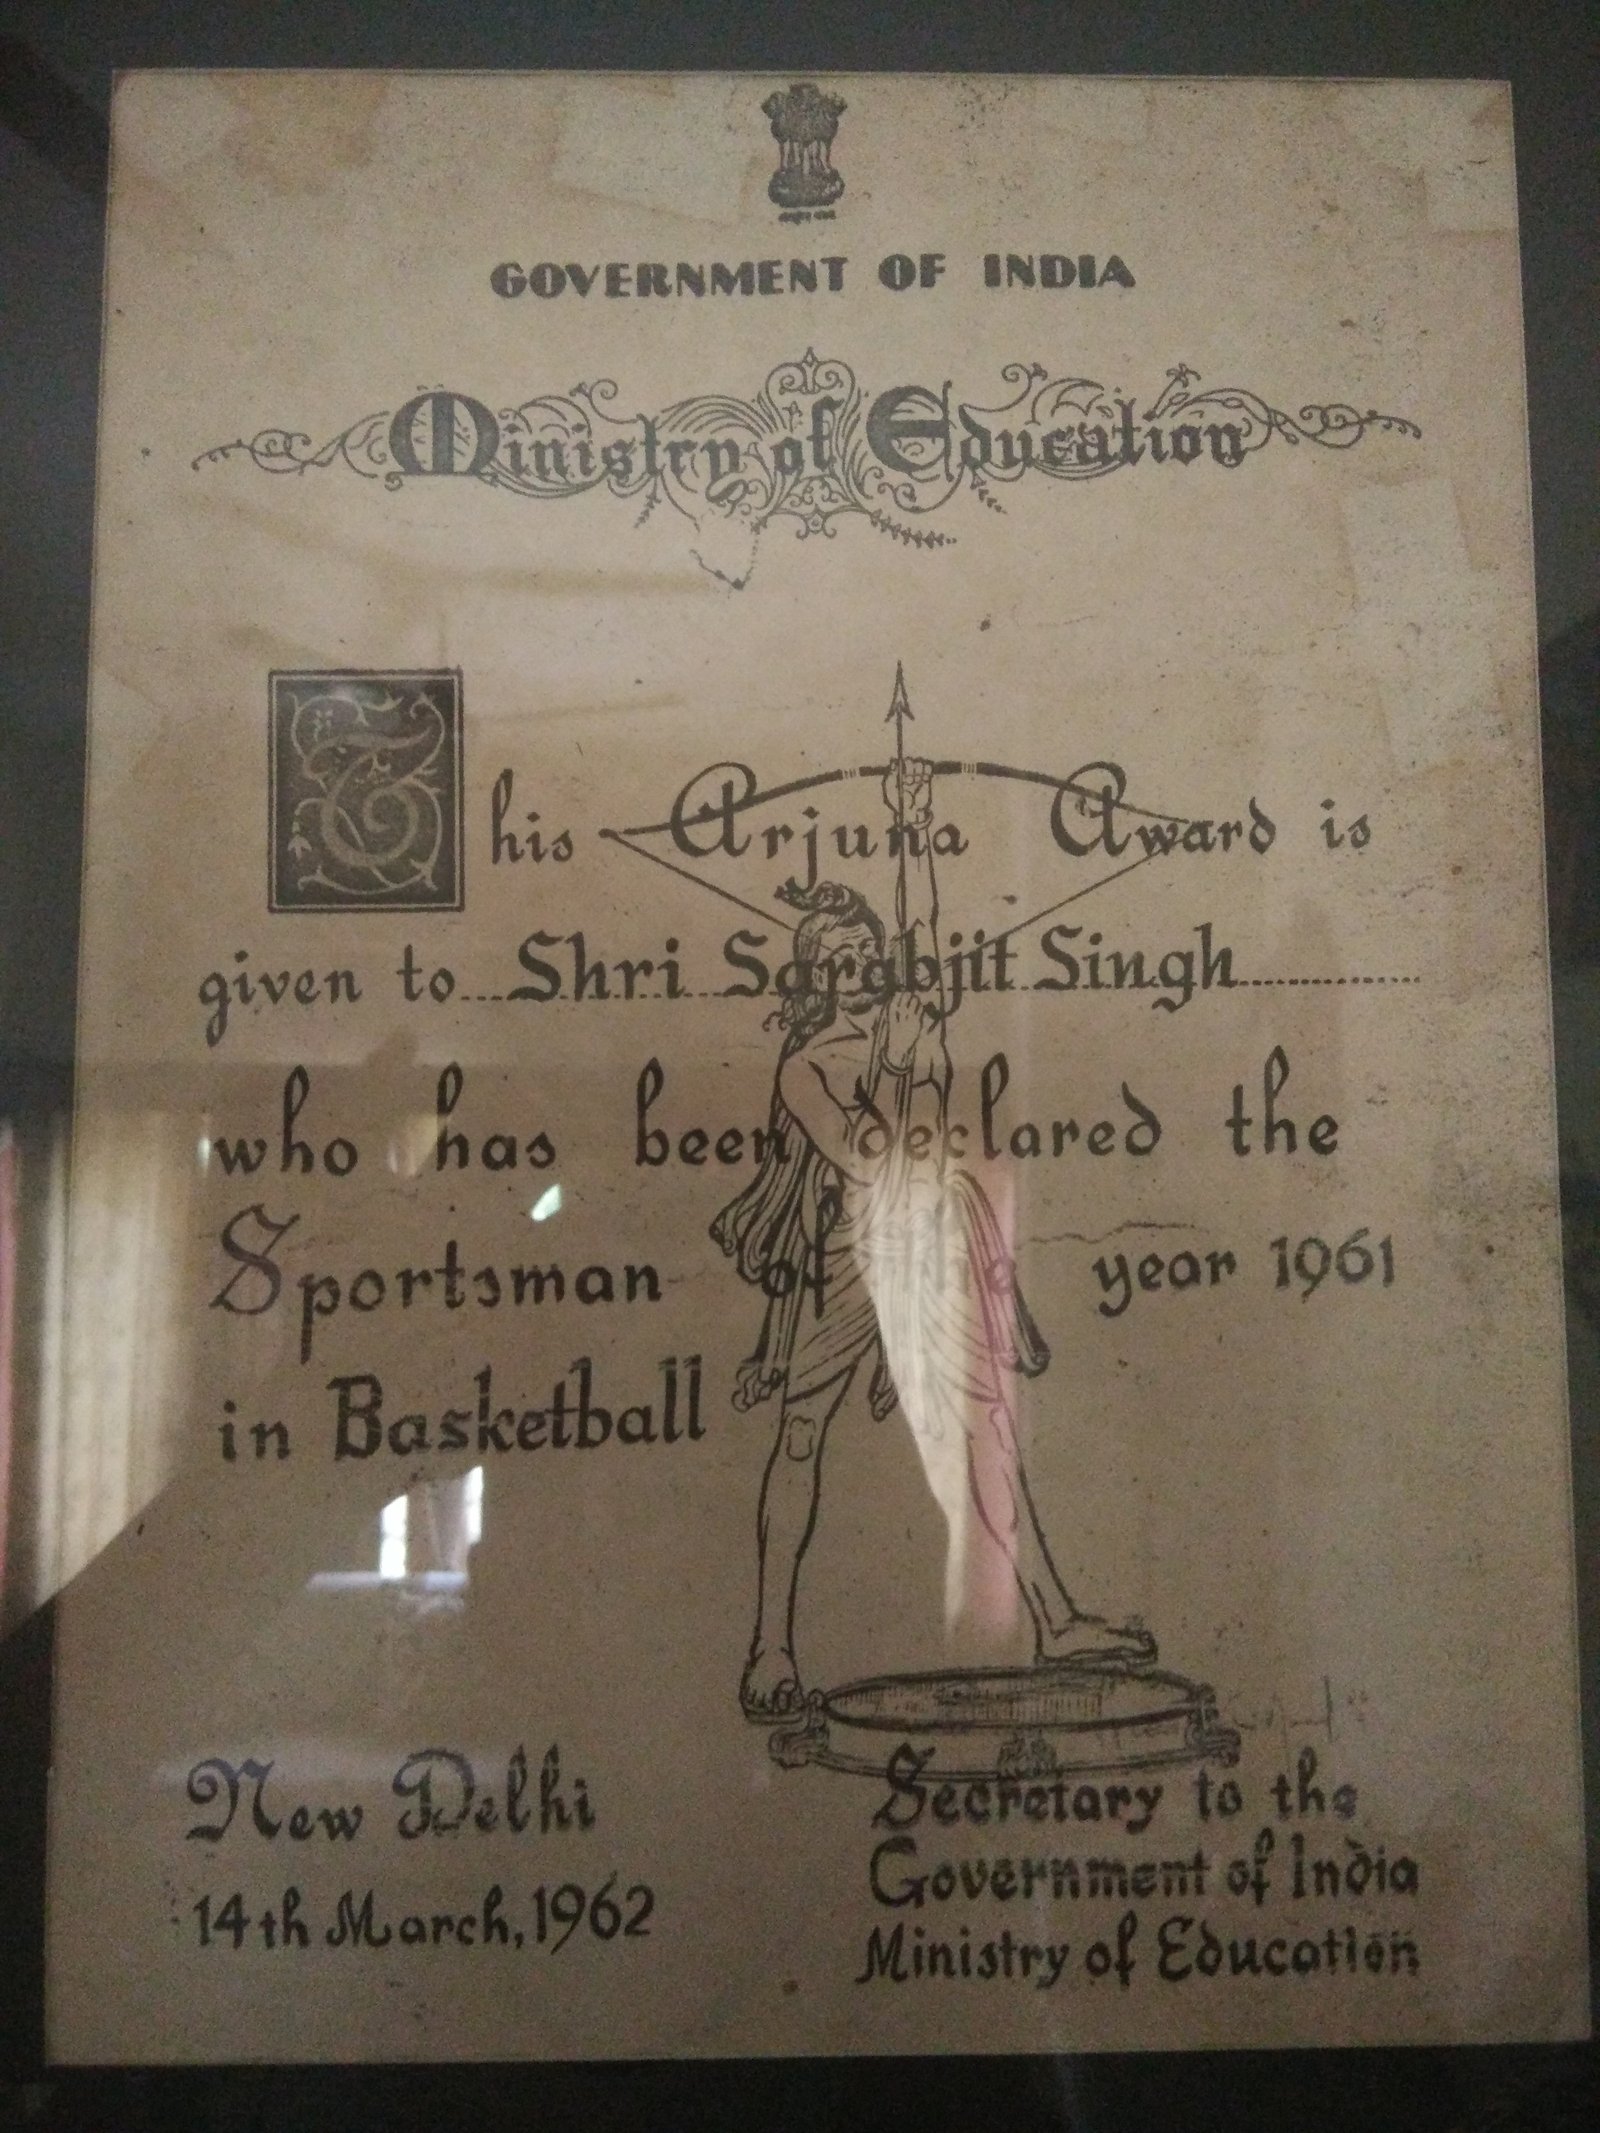 GOVERNMENT OF INDIA
Ministry of Education
This Arjuna Award is
given to Shri Sarabjit Singh
who has been declared the
Sportsman of the year 1961
in Basketball
New Delhi
14th March, 1962
Secretary to the
Government of India
Ministry of Education